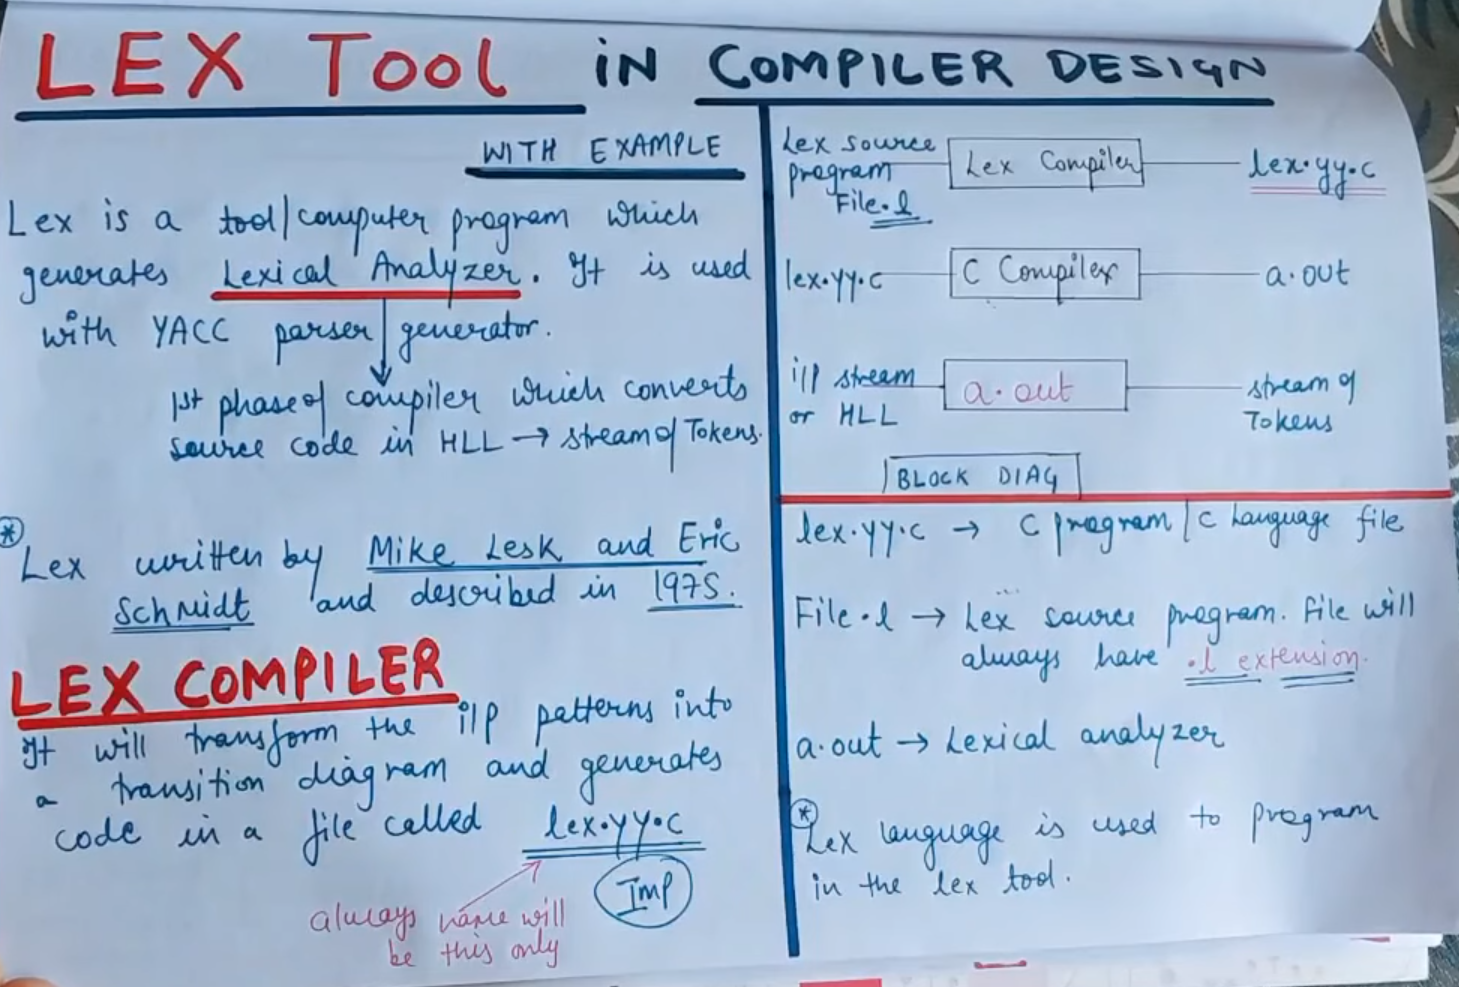 LEX Tool iN COMPILER DESIGN
WITH EXAMPLE
Lex is a tool/computer program which
generates Lexical Analyzer. It is used
with YACC parser generator.
1st phase of compiler which converts
source code in HLL → stream of Tokens.
* Lex written by Mike Lesk and Eric
Schmidt and described in 1975.
LEX COMPILER
It will transform the i/p patterns into
a transition diagram and generates
code in a file called lex.yy.c
Imp
always name will
be this only
Lex source
program
File.l
Lex Compiler
lex.yy.c
lex.yy.c
C Compiler
a.out
i/p stream
or HLL
a.out
stream of
Tokens
BLOCK DIAG
lex.yy.c → C program / C Language file
File.l → Lex source program. File will
always have .l extension.
a.out → Lexical analyzer
* Lex language is used to program
in the lex tool.